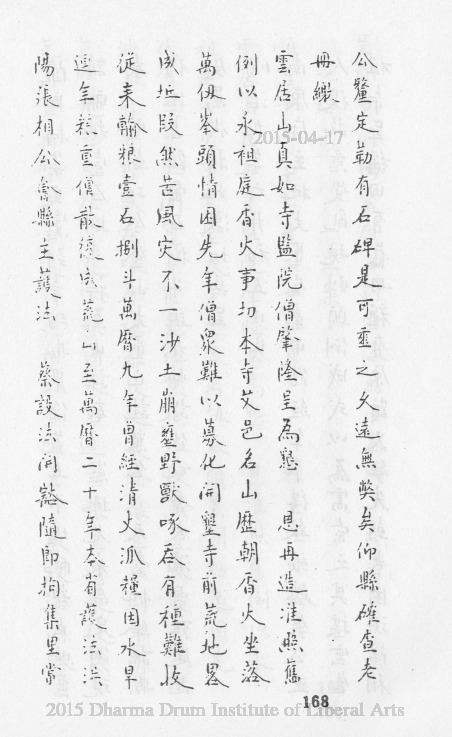 公釐定勒有石碑是可垂之久遠無獘矣仰縣確查老
冊繳
雲居山真如寺監院僧肇隆呈為懇　恩再造准照舊
例以永祖庭香火事切本寺艾邑名山歷朝香火坐落
萬仭峯頭情因先年僧眾難以募化開墾寺前荒地畧
成坵段然苦風灾不一沙土崩壅野獸啄吞有種難收
從来輸粮壹石捌斗萬曆九年曾經清丈派糧因水旱
連年粮重僧散復成荒山至萬曆二十年本省護法洪
陽張相公會縣主護法　蔡設法開豁隨即拘集里當
2015-04-17
168
2015 Dharma Drum Institute of Liberal Arts